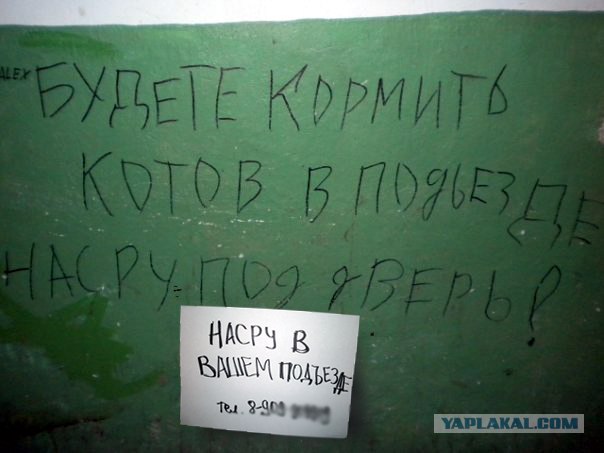 ALEX
БУДЕТЕ КОРМИТЬ
КОТОВ В ПОДЬЕЗДЕ
НАСРУ ПОД ДВЕРЬ!
НАСРУ В
ВАШЕМ ПОДЪЕЗДЕ
тел. 8-909
YAPLAKAL.COM